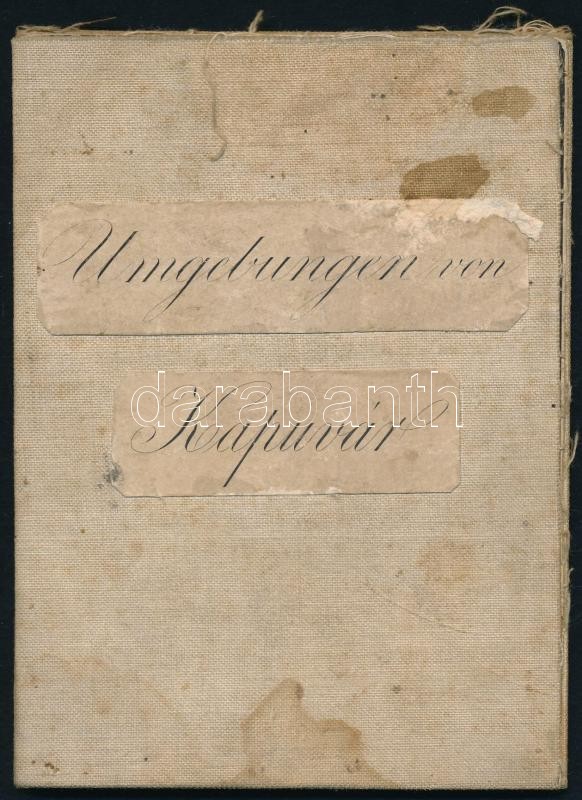 Umgebungen von
darabanth
Kapuvár